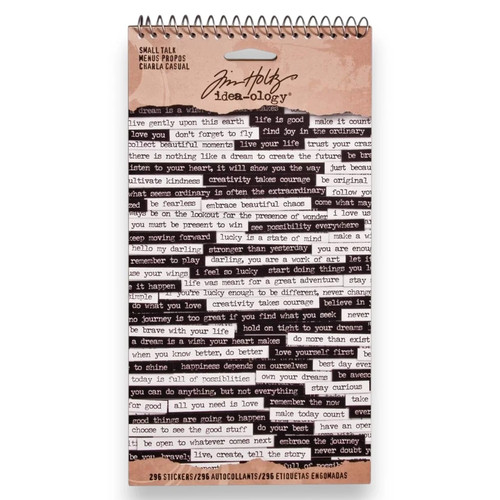 SMALL TALK
MENUS PROPOS
CHARLA CASUAL
Tim Holtz
idea-ology®
a dream is a wish
live gently upon this earth life is good make it count
love you don't forget to fly find joy in the ordinary
collect beautiful moments live your life trust your crazy
there is nothing like a dream to create the future be
listen to your heart, it will show you the way just
cultivate kindness creativity takes courage be original
what seems ordinary is often the extraordinary follow
be fearless embrace beautiful chaos come what may
always be on the lookout for the presence of wonder i love
you must be present to win see possibility everywhere
keep moving forward lucky is a state of mind make a
hello my darling stronger than yesterday you are
remember to play darling, you are a work of art let
use your wings i feel so lucky start doing things you
it happen life was meant for a great adventure stay
simple if you're lucky enough to be different, never
do what you love creativity takes courage believe in
no journey is too great if you find what you seek never
be brave with your life hold on tight to your dreams
a dream is a wish your heart makes do more than exist
when you know better, do better love yourself first be
to shine happiness depends on ourselves best day
today is full of possiblities own your dreams be
you can do anything, but not everything stay curious
for good all you need is love remember the now take
good things are going to happen make today count
choose to see the good stuff do your best have an
it be open to whatever comes next embrace the journey
be you bravely live, create, tell the story never doubt
full of
296 STICKERS/296 AUTOCOLLANTS/296 ETIQUETAS ENGOMADAS